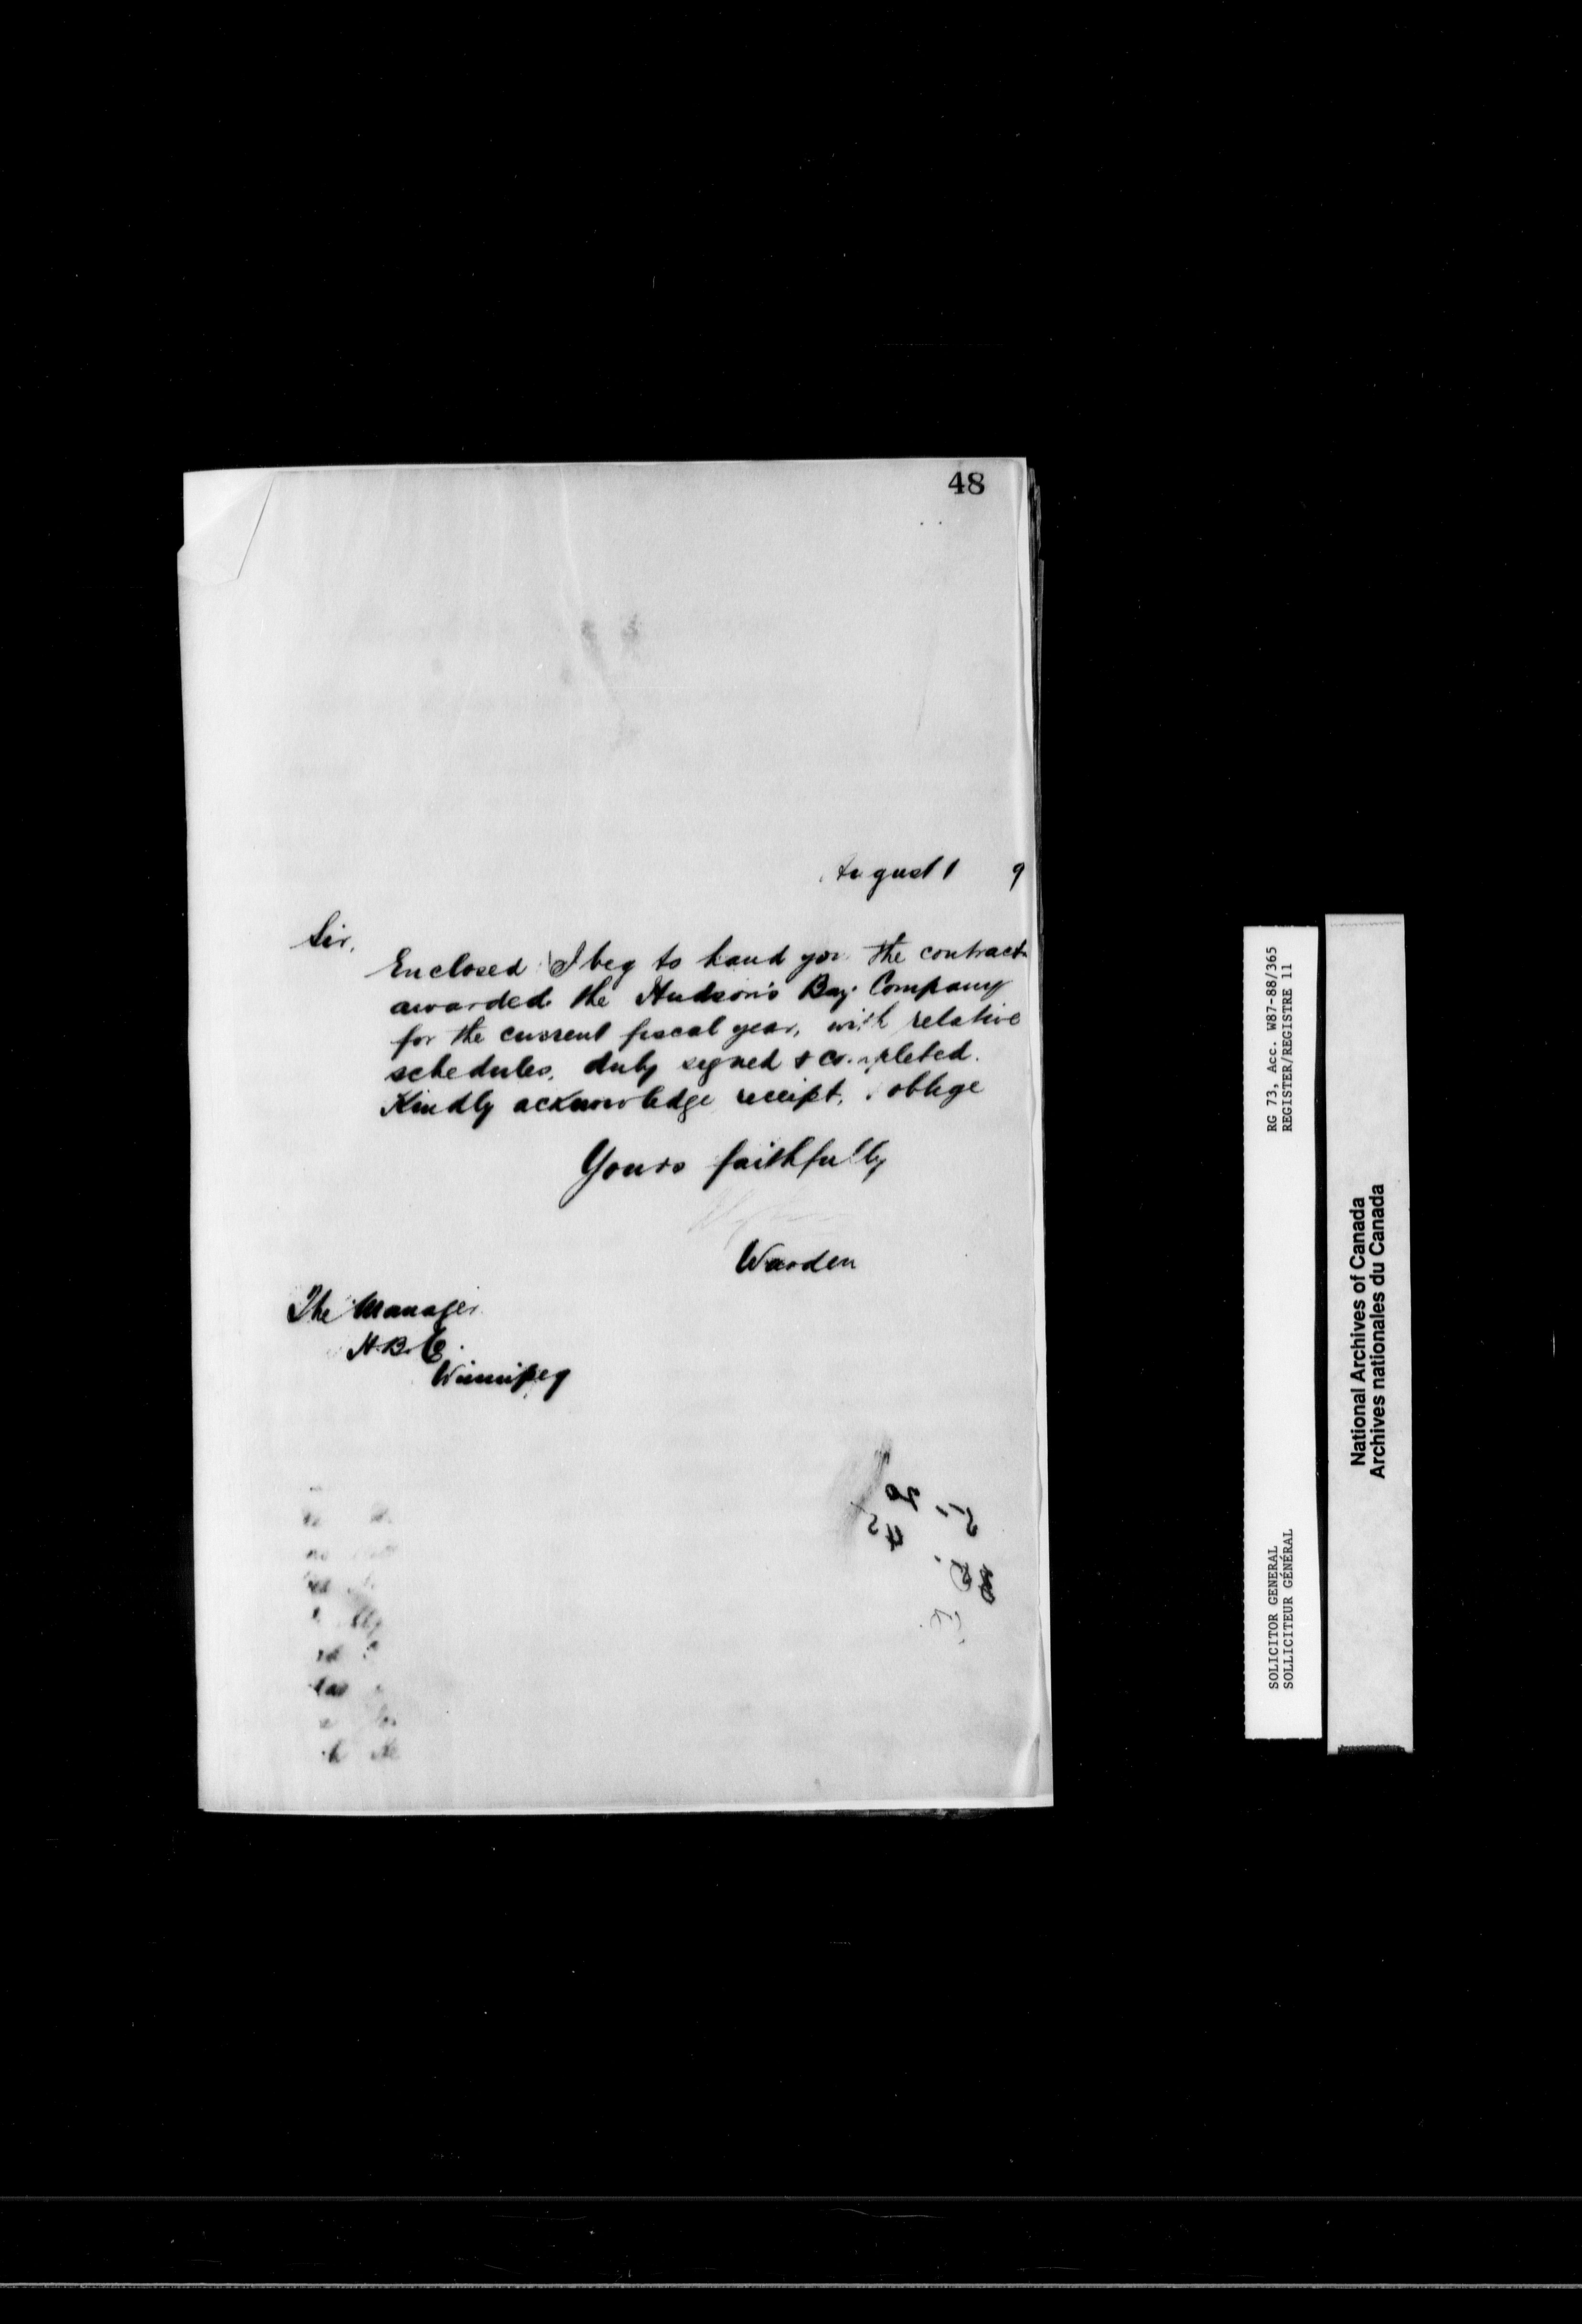 48
August 1 9
Sir,
Enclosed I beg to hand you the contract
awarded the Hudson's Bay Company
for the current fiscal year, with relative
schedules, duly signed & completed.
Kindly acknowledge receipt, & oblige
Yours faithfully
Warden
The Manager
H.B.C.
Winnipeg
RG 73, Acc. W87-88/365
REGISTER/REGISTRE 11
SOLICITOR GENERAL
SOLLICITEUR GÉNÉRAL
National Archives of Canada
Archives nationales du Canada